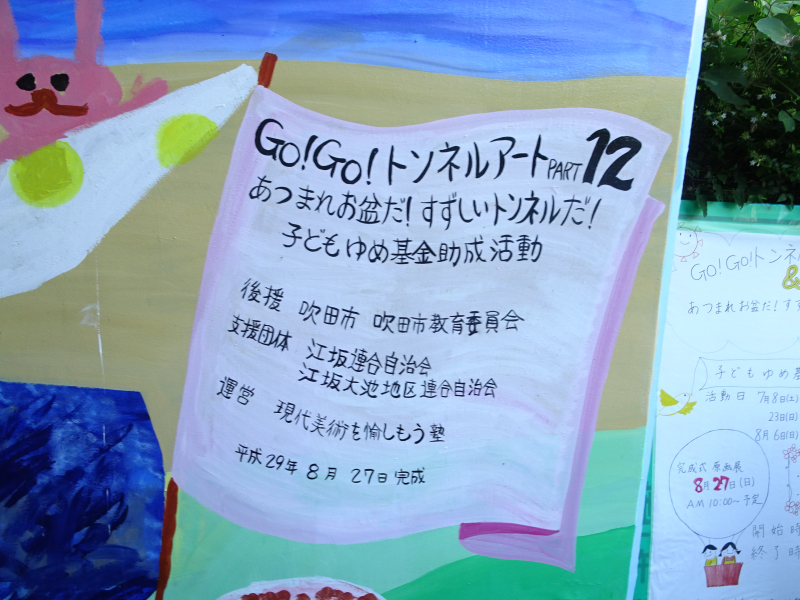 Go!Go!トンネルアートPART12
あつまれお盆だ!すずしいトンネルだ!
子どもゆめ基金助成活動
後援 吹田市 吹田市教育委員会
支援団体 江坂連合自治会
江坂大池地区連合自治会
運営 現代美術を愉しもう塾
平成29年8月27日完成
GO!GO!トンネル
&
あつまれお盆だ!すず
子どもゆめ基
活動日 7月8日(土)
23日(日)
8月6日(日)
完成式 原画展
8月27日(日)
AM10:00〜予定
開始時
終了時